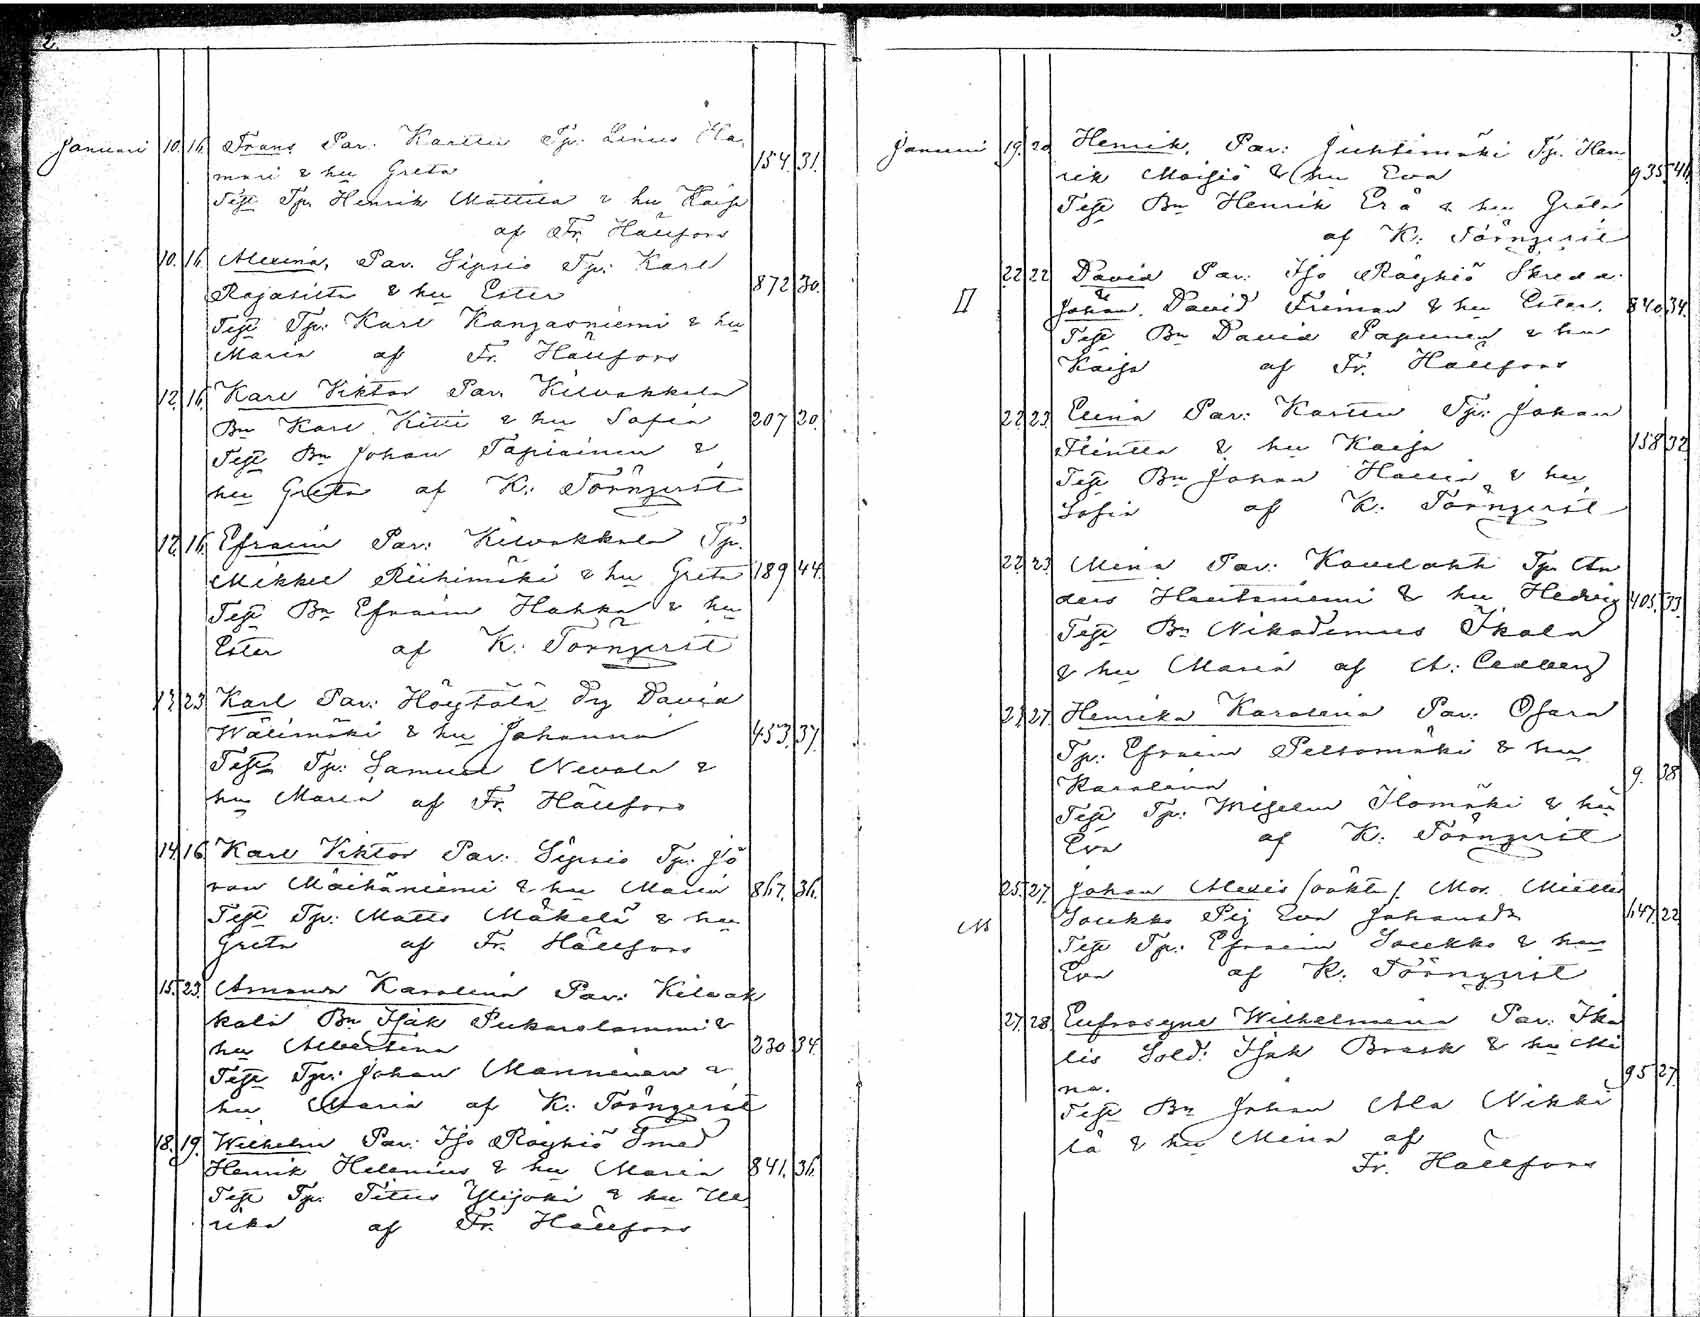 2.
Januari 10. 16. Frans, Par. Karttu Tp. Linus Ha
mari & hu Greta 154. 31.
Test Tp. Henrik Mattila & hu Kaisa
af Fr. Hällfors
10. 16. Alexina, Par. Sipsiö Tp. Karl
Rajasilta & hu Ester 872 30.
Test Tp. Karl Kangasniemi & hu
Maria af Fr. Hällfors
12. 16. Karl Viktor Par. Kilvakkala
Bn Karl Kitti & hu Sofia 207 20.
Test Bn Johan Tapiainen &
hu Greta af K: Törnqvist
12. 16. Efraim Par: Kilvakkala Tp.
Mikkel Riihimäki & hu Greta 189 44.
Test Bn Efraim Hakka & hu
Ester af K: Törnqvist
23. Karl Par: Höytölä Dg David
Wälimäki & hu Johanna 453. 37.
Test Tp: Samuel Nevala &
hu Maria af Fr. Hällfors
14. 16. Karl Viktor Par: Sipsiö Tp: Jö
ran Mäihäniemi & hu Maria 867. 36.
Test Tp: Matts Mäkelä & hu
Greta af Fr. Hällfors
15. 23. Amanda Karolina Par: Kilvak
kala Bn Isak Pukaralammi &
hu Albertina 230 34.
Test Tp: Johan Manninen &
hu Maria af K: Törnqvist
18. 19. Wilhelm Par: Iso Röyhiö Smed
Henrik Helenius & hu Maria 841. 36.
Test Tp: Titus Ylijoki & hu Ul
rika af Fr. Hällfors
3.
Januari 19. 20. Henrik, Par: Juhtimäki Tp. Hen
rik Moisiö & hu Eva 935. 41.
Test Bn Henrik Erä & hu Greta
af K: Törnqvist
22. 22. David Par: Iso Röyhiö Skredd.
Johan, David Friman & hu Ester. 840. 34.
Test Bn David Papunen & hu
Kaisa af Fr. Hällfors
22. 23. Elina Par: Karttu Tp: Johan
Flintta & hu Kaisa 158 32
Test Bn Johan Halla & hu
Sofia af K: Törnqvist
22. 23. Mina Par: Kovelahti Tp. An
ders Hautaniemi & hu Hedvig 405. 33.
Test Bn Nikodemus Ikala
& hu Maria af A: Cedberg
27. Henrika Karolina Par: Osara
Tp: Efraim Peltomäki & hu
Karolina 9. 38
Test Tp: Wilhelm Ilomäki & hu
Eva af K: Törnqvist
25. 27. Johan Alexis (oäkta) Mor. Miettu
M Soukko Pig Eva Johansdr 647. 22.
Test Tp: Efraim Soukko & hu
Eva af K: Törnqvist
27. 28. Eufrosyne Wilhelmina Par: Ika
lis Sold: Isak Brask & hu Mi
na. 95 27.
Test Bn Johan Ala Nikki
lä & hu Mina af
Fr. Hällfors